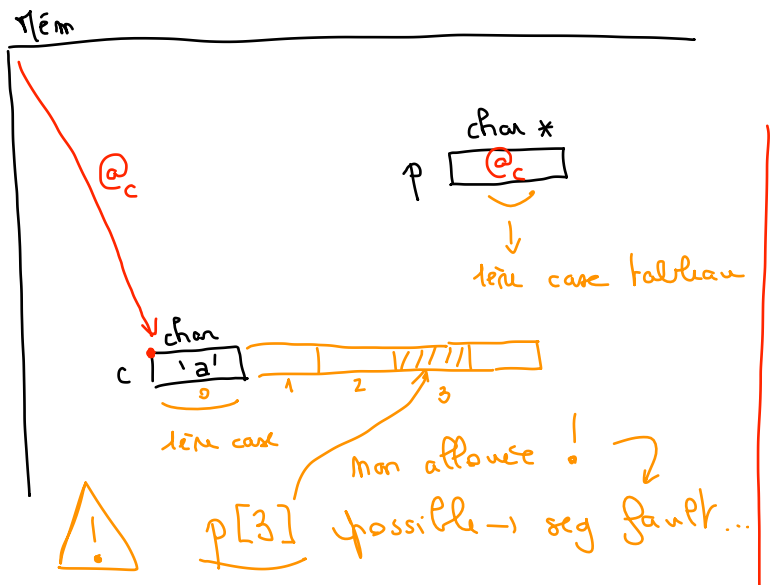 Mém
char *
@c
p
@c
1ère case tableau
char
c
'a'
0
1
2
3
1ère case
non allouée !
!
p[3] possible → seg fault...